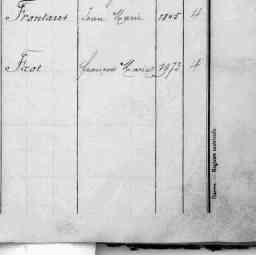 Frontaut Jean Marie 1845 4
Ficot François Marie 1973 4